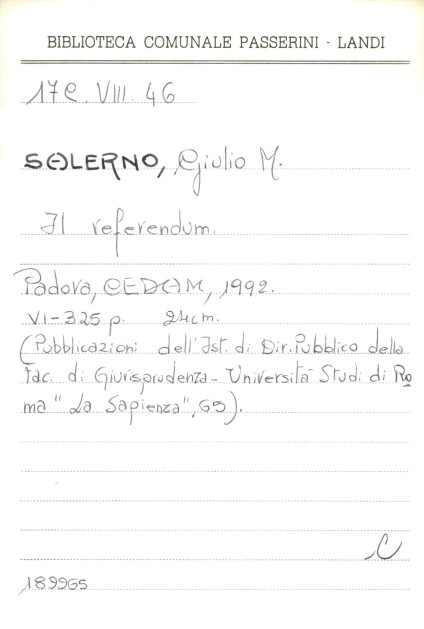 BIBLIOTECA COMUNALE PASSERINI - LANDI
17C. VIII. 46
SALERNO, Giulio M.
Il referendum.
Padova, CEDAM, 1992.
VI-325 p. 24cm.
(Pubblicazioni dell'Ist. di Dir. Pubblico della
Fac. di Giurisprudenza - Università Studi di Ro
ma "La Sapienza", 69).
C
189965